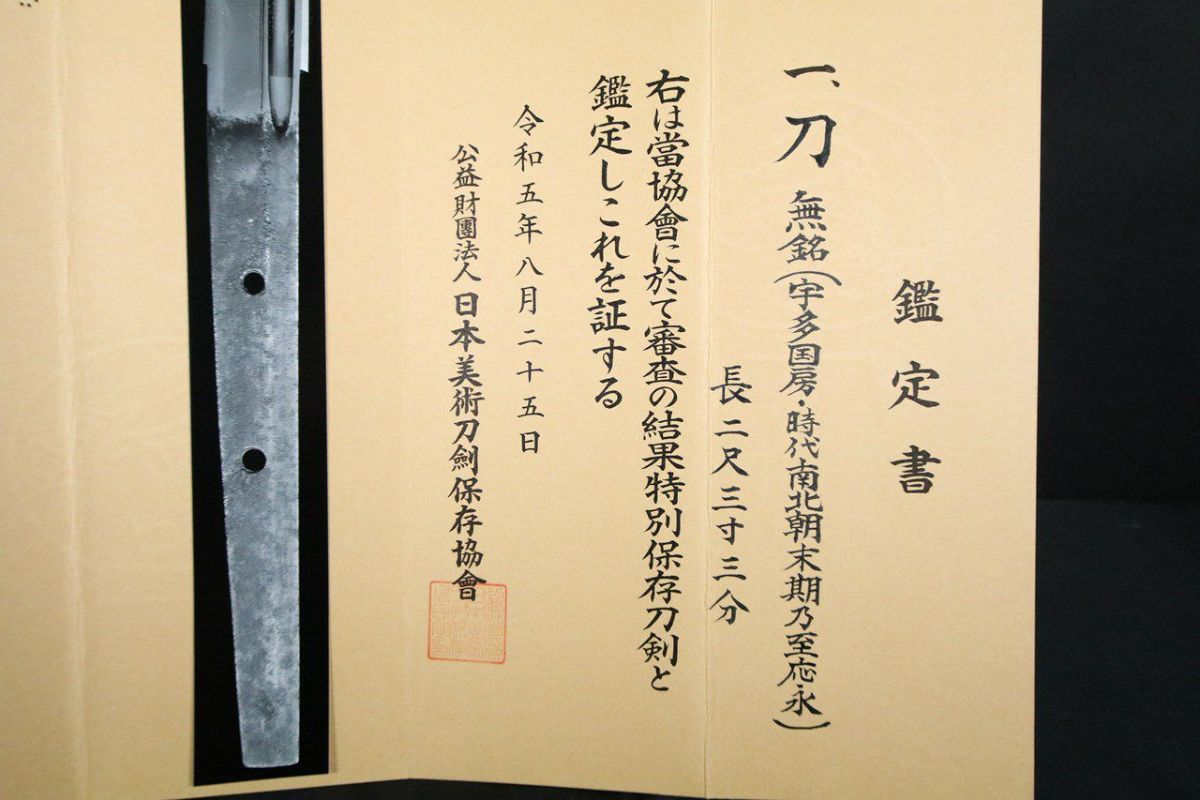 鑑定書
一、刀 無銘(宇多国房・時代南北朝末期乃至応永)
長二尺三寸三分
右は當協會に於て審査の結果特別保存刀剣と
鑑定しこれを証する
令和五年八月二十五日
公益財團法人日本美術刀劍保存協會